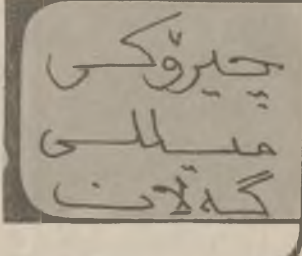 چیرۆکی
میللی
گەلان